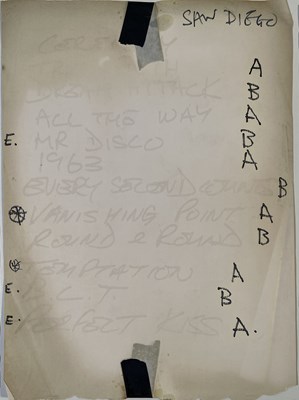 SAN DIEGO
CEREMONY
A
DREAM ATTACK B
ALL THE WAY A
E. MR DISCO B
1963 A
EVERY SECOND COUNTS B
VANISHING POINT A
ROUND & ROUND B
TEMPTATION A
E. B L T B
E. PERFECT KISS A.